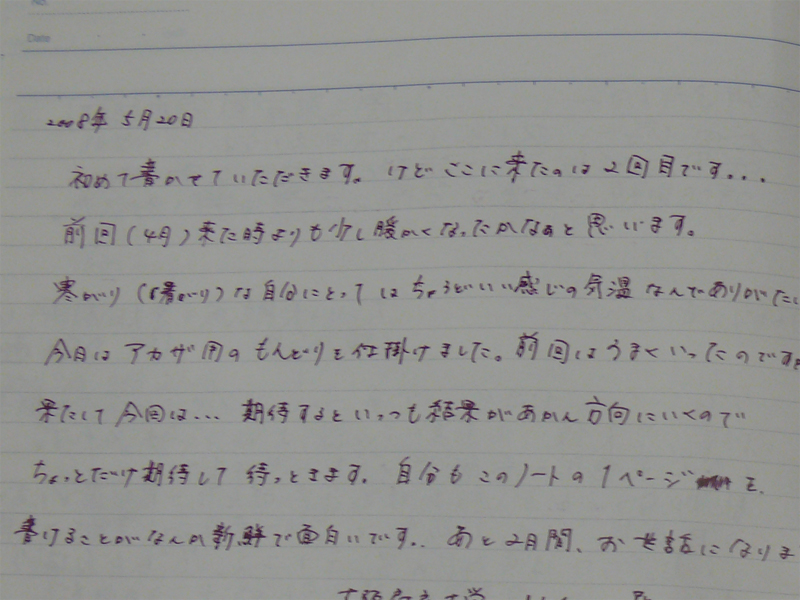 No.
Date
2008年 5月20日
初めて書かせていただきます。けどここに来たのは2回目です...
前回(4月)来た時よりも少し暖かくなったかなぁと思います。
寒がり(暑がり)な自分にとってはちょうどいい感じの気温なんでありがたい
今日はアカザ用のもんどりを仕掛けました。前回はうまくいったのですが
果たして今回は... 期待するといっつも結果があかん方向にいくので
ちょっとだけ期待して待っときます。自分もこのノートの1ページを
書けることがなんか新鮮で面白いです.. あと2月間、お世話になりま